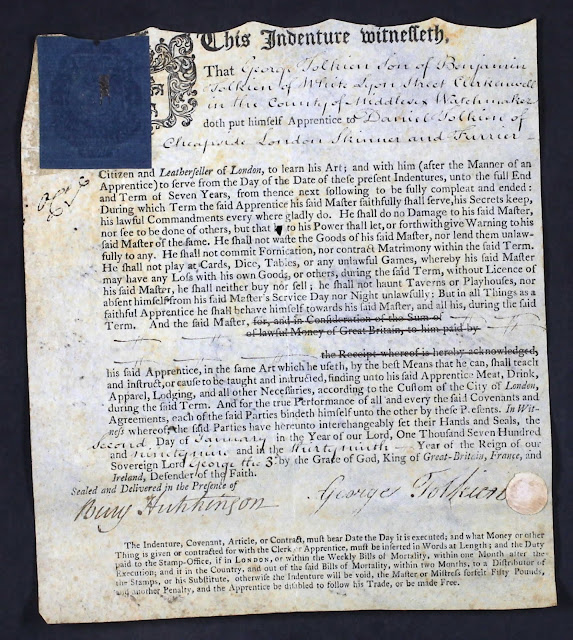 This Indenture witnesseth,
That George Tolkien Son of Benjamin
Tolkien of White Lyon Street Clerkenwell
in the County of Middlesex Watchmaker
doth put himself Apprentice to Daniel Tolkien of
Cheapside London Skinner and Furrier
Citizen and Leatherseller of London, to learn his Art; and with him (after the Manner of an
Apprentice) to serve from the Day of the Date of these present Indentures, unto the full End
and Term of Seven Years, from thence next following to be fully compleat and ended:
During which Term the said Apprentice his said Master faithfully shall serve, his Secrets keep,
his lawful Commandments every where gladly do. He shall do no Damage to his said Master,
nor see to be done of others, but that to his Power shall let, or forthwith give Warning to his
said Master of the same. He shall not waste the Goods of his said Master, nor lend them unlaw-
fully to any. He shall not commit Fornication, nor contract Matrimony within the said Term.
He shall not play at Cards, Dice, Tables, or any unlawful Games, whereby his said Master
may have any Loss with his own Goods, or others, during the said Term, without Licence of
his said Master, he shall neither buy nor sell; he shall not haunt Taverns or Playhouses, nor
absent himself from his said Master's Service Day nor Night unlawfully: But in all Things as a
faithful Apprentice he shall behave himself towards his said Master, and all his, during the said
Term. And the said Master, for, and in Consideration of the Sum of
of lawful Money of Great Britain, to him paid by
the Receipt whereof is hereby acknowledged,
his said Apprentice, in the same Art which he useth, by the best Means that he can, shall teach
and instruct, or cause to be taught and instructed, finding unto his said Apprentice Meat, Drink,
Apparel, Lodging, and all other Necessaries, according to the Custom of the City of London,
during the said Term. And for the true Performance of all and every the said Covenants and
Agreements, each of the said Parties bindeth himself unto the other by these Presents. In Wit-
ness whereof, the said Parties have hereunto interchangeably set their Hands and Seals, the
Second Day of January in the Year of our Lord, One Thousand Seven Hundred
and ninetynine and in the thirtyninth Year of the Reign of our
Sovereign Lord George the 3d by the Grace of God, King of Great-Britain, France, and
Ireland, Defender of the Faith.
Sealed and Delivered in the Presence of
Bury Hutchinson George Tolkien
The Indenture, Covenant, Article, or Contract, must bear Date the Day it is executed; and what Money or other
Thing is given or contracted for with the Clerk or Apprentice, must be inserted in Words at Length; and the Duty
paid to the Stamp-Office, if in LONDON, or within the Weekly Bills of Mortality, within one Month after the
Execution; and if in the Country, and out of the said Bills of Mortality, within two Months, to a Distributor of
the Stamps, or his Substitute, otherwise the Indenture will be void, the Master or Mistress forfeit Fifty Pounds,
and another Penalty, and the Apprentice be disabled to follow his Trade, or be made Free.